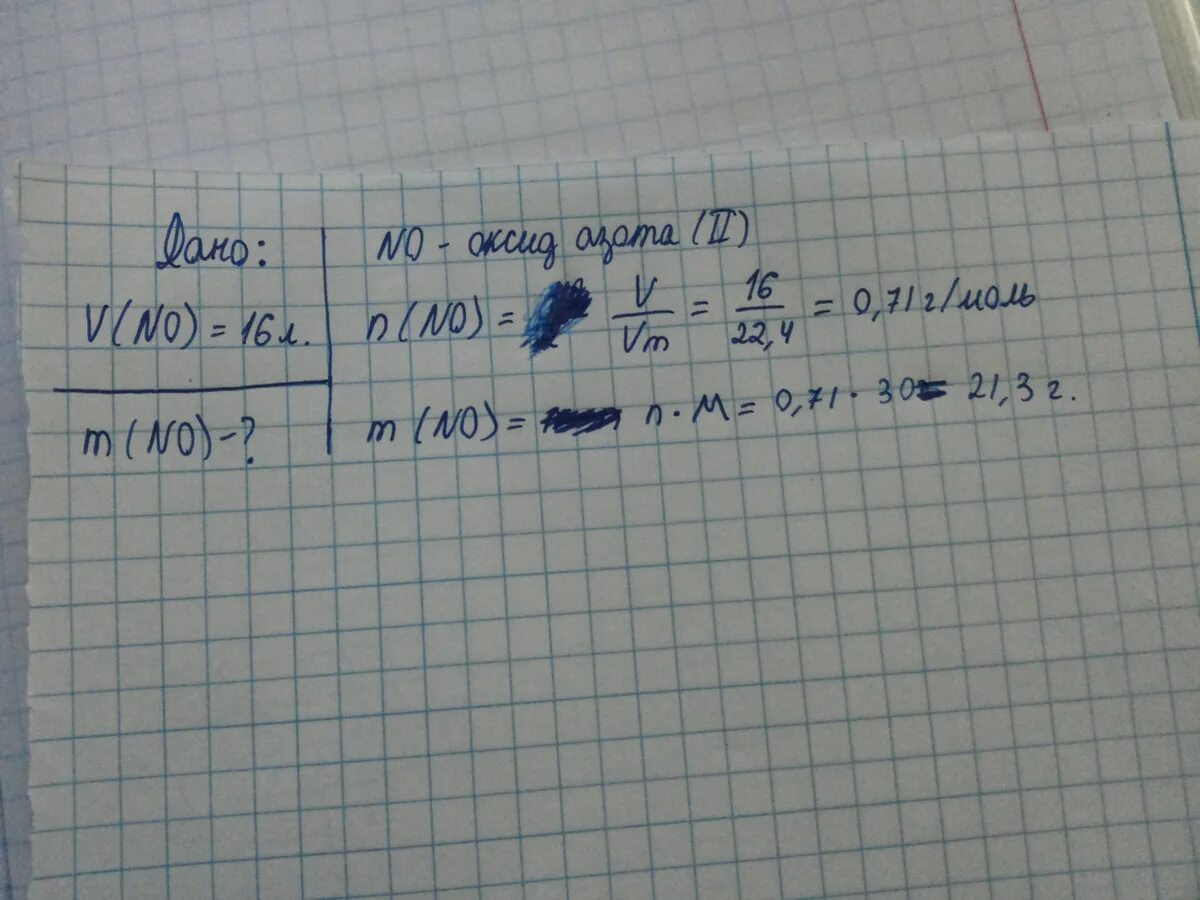 Дано:
V(NO) = 16 л.
m(NO) - ?
NO - оксид азота (II)
n(NO) = V/Vm = 16/22,4 = 0,71 г/моль
m(NO) = n · M = 0,71 · 30 = 21,3 г.